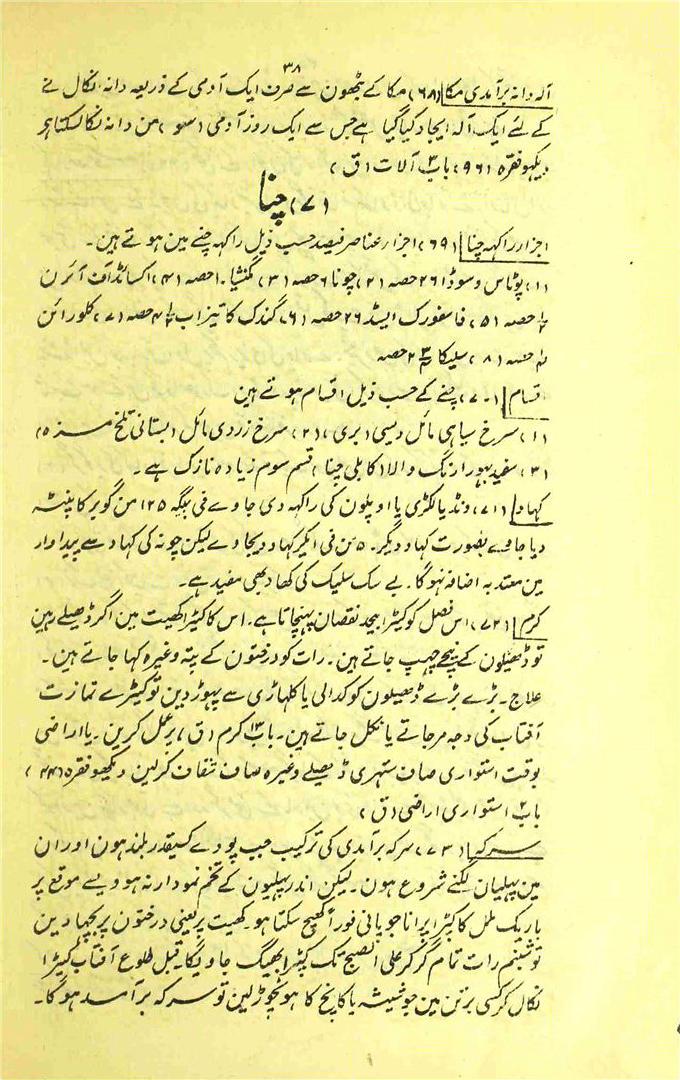 ۳۸
آلہ دانہ برآمدی مکا (۶۸) مکا کے بھٹوں سے صرف ایک آدمی کے ذریعہ دانہ نکال نے
کے لئے ایک آلہ ایجاد کیا گیا ہے جس سے ایک روز آدمی (سو) من دانہ نکال سکتا ہو
دیکھو فقرہ (۹۶) باب آلات (ق)
(۷) چنا
اجزار راکہہ چنا (۶۹) اجزار عناصر فیصد حسب ذیل راکہہ چنے مین ہوتے ہین۔
(۱) پوٹاس وسوڈا ۲۶ حصہ (۲) چونا ۶ حصہ (۳) مگنشیا ۱۰ حصہ (۴) اکسائڈ آف آئرن
حصہ (۵) فاسفورک ایسڈ ۲۶ حصہ (۶) گندک کا تیزاب حصہ (۷) کلورائن
حصہ (۸) سلیکا حصہ
اقسام (۷۰) چنے کے حسب ذیل اقسام ہوتے ہین
(۱) سرخ سیاہی مائل دیسی (بری) (۲) سرخ زردی مائل (بستانی تلخ مزہ)
(۳) سفید بہورا رنگ والا (کابلی چنا) قسم سوم زیادہ نازک ہے۔
کہاد (۷۱) ونڈیا لکڑی یا اوپلون کی راکہہ دی جاوے فی بیگہ ۱۲۵ من گوبر کا پنٹہ
دیا جاوے بصورت کہاد دیگر۔ ۵ من فی ایکر کہاد دیجاوے لیکن چونہ کی کہاد سے پیداوار
مین معتدبہ اضافہ نہوگا۔ بے سک سلیک کی کھاد بھی مفید ہے۔
کرم (۷۲) اس فصل کو کیڑا بیحد نقصان پہنچاتا ہے۔ اس کا کیڑا کھیت مین اگر ڈھیلے رہین
تو ڈھیلون کے نیچے چہپ جاتے ہین۔ رات کو درختون کے پتہ وغیرہ کہا جاتے ہین۔
علاج۔ بڑے بڑے ڈھیلون کو کدالی یا کلہاڑی سے پہوڑ دین تو کیڑے تمازت
آفتاب کی وجہ مرجاتے یا نکل جاتے ہین۔ باب ۱۳ کرم (ق) پر عمل کرین۔ یا اراضی
بوقت استواری صاف ستہری ڈھیلے وغیرہ صاف شفاف کرلین دیکھو فقرہ (۴۴)
باب ۲ استواری اراضی (ق)
سرکہ (۷۳) سرکہ برآمدی کی ترکیب جب پودے کسیقدر بلند ہون اور ان
مین پہلیان لگنے شروع ہون۔ لیکن اندر پہلیون کے تخم نمودار نہ ہو ویسے موقع پر
باریک ململ کا کپڑا پرانا جو پانی فوراً کھینچ سکتا ہو۔ کھیت پر یعنی درختون پر بچہا دین
تو شبنم رات تمام گر کر علی الصبح تک کپڑا بھیگ جاویگا۔ قبل طلوع آفتاب کپڑا
نکال کر کسی برتن مین جو شیشہ یا کانچ کا ہو نچوڑلین تو سرکہ برآمد ہوگا۔